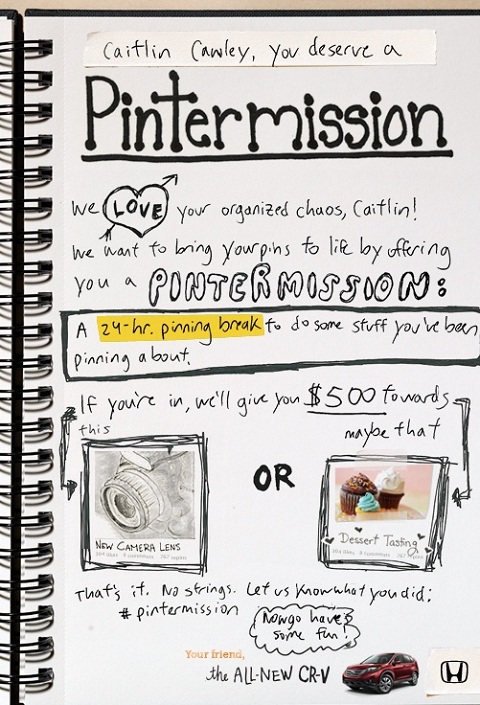 Caitlin Cawley, you deserve a
Pintermission
We LOVE your organized chaos, Caitlin!
We want to bring your pins to life by offering
you a PINTERMISSION:
A 24-hr. pinning break to do some stuff you've been
pinning about.
If you're in, we'll give you $500 towards
this
maybe that
OR
NEW CAMERA LENS
Dessert Tasting
That's it. No strings. Let us know what you did:
#pintermission
Now go have
some fun!
Your friend,
the ALL-NEW CR-V